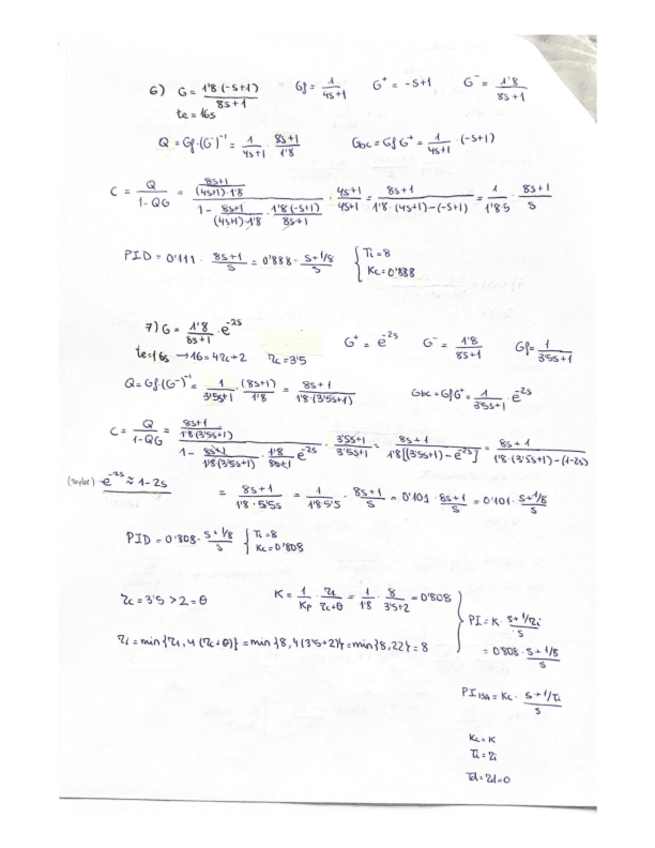 6) G = 1'8 (-s+1) / 8s+1   Gf = 1 / 4s+1   G⁺ = -s+1   G⁻ = 1'8 / 8s+1
te = 16s
Q = Gf·(G⁻)⁻¹ = 1 / 4s+1 · 8s+1 / 1'8   GBC = Gf G⁺ = 1 / 4s+1 · (-s+1)
C = Q / 1-QG = (8s+1 / (4s+1)·1'8) / (1 - 8s+1 / (4s+1)·1'8 · 1'8(-s+1) / 8s+1) · 4s+1 / 4s+1 = 8s+1 / 1'8·(4s+1)-(-s+1) = 1 / 1'8·5 · 8s+1 / s
PID = 0'111 · 8s+1 / s = 0'888 · s+1/8 / s   { Ti = 8
Kc = 0'888
7) G = 1'8 / 8s+1 · e^-2s   G⁺ = e^-2s   G⁻ = 1'8 / 8s+1   Gf = 1 / 3'5s+1
te = 16s → 16 = 4τc+2   τc = 3'5
Q = Gf·(G⁻)⁻¹ = 1 / 3'5s+1 · (8s+1) / 1'8 = 8s+1 / 1'8·(3'5s+1)   GBC = GfG⁺ = 1 / 3'5s+1 · e^-2s
C = Q / 1-QG = (8s+1 / 1'8(3'5s+1)) / (1 - 8s+1 / 1'8(3'5s+1) · 1'8 / 8s+1 e^-2s) · 3'5s+1 / 3'5s+1 = 8s+1 / 1'8[(3'5s+1) - e^-2s] = 8s+1 / 1'8·(3'5s+1)-(1-2s)
(taylor) e^-2s ≈ 1-2s   = 8s+1 / 1'8·5'5s = 1 / 1'8·5'5 · 8s+1 / s = 0'101 · 8s+1 / s = 0'101 · s+1/8 / s
PID = 0'808 · s+1/8 / s   { Ti = 8
Kc = 0'808
τc = 3'5 > 2 = θ   K = 1 / Kp · τ1 / τc+θ = 1 / 1'8 · 8 / 3'5+2 = 0'808
τi = min{τ1, 4(τc+θ)} = min{8, 4(3'5+2)} = min{8, 22} = 8
} PI = K · s+1/τi / s
= 0'808 · s+1/8 / s
PI ISA = Kc · s+1/Ti / s
Kc = K
Ti = τi
Td = τd = 0